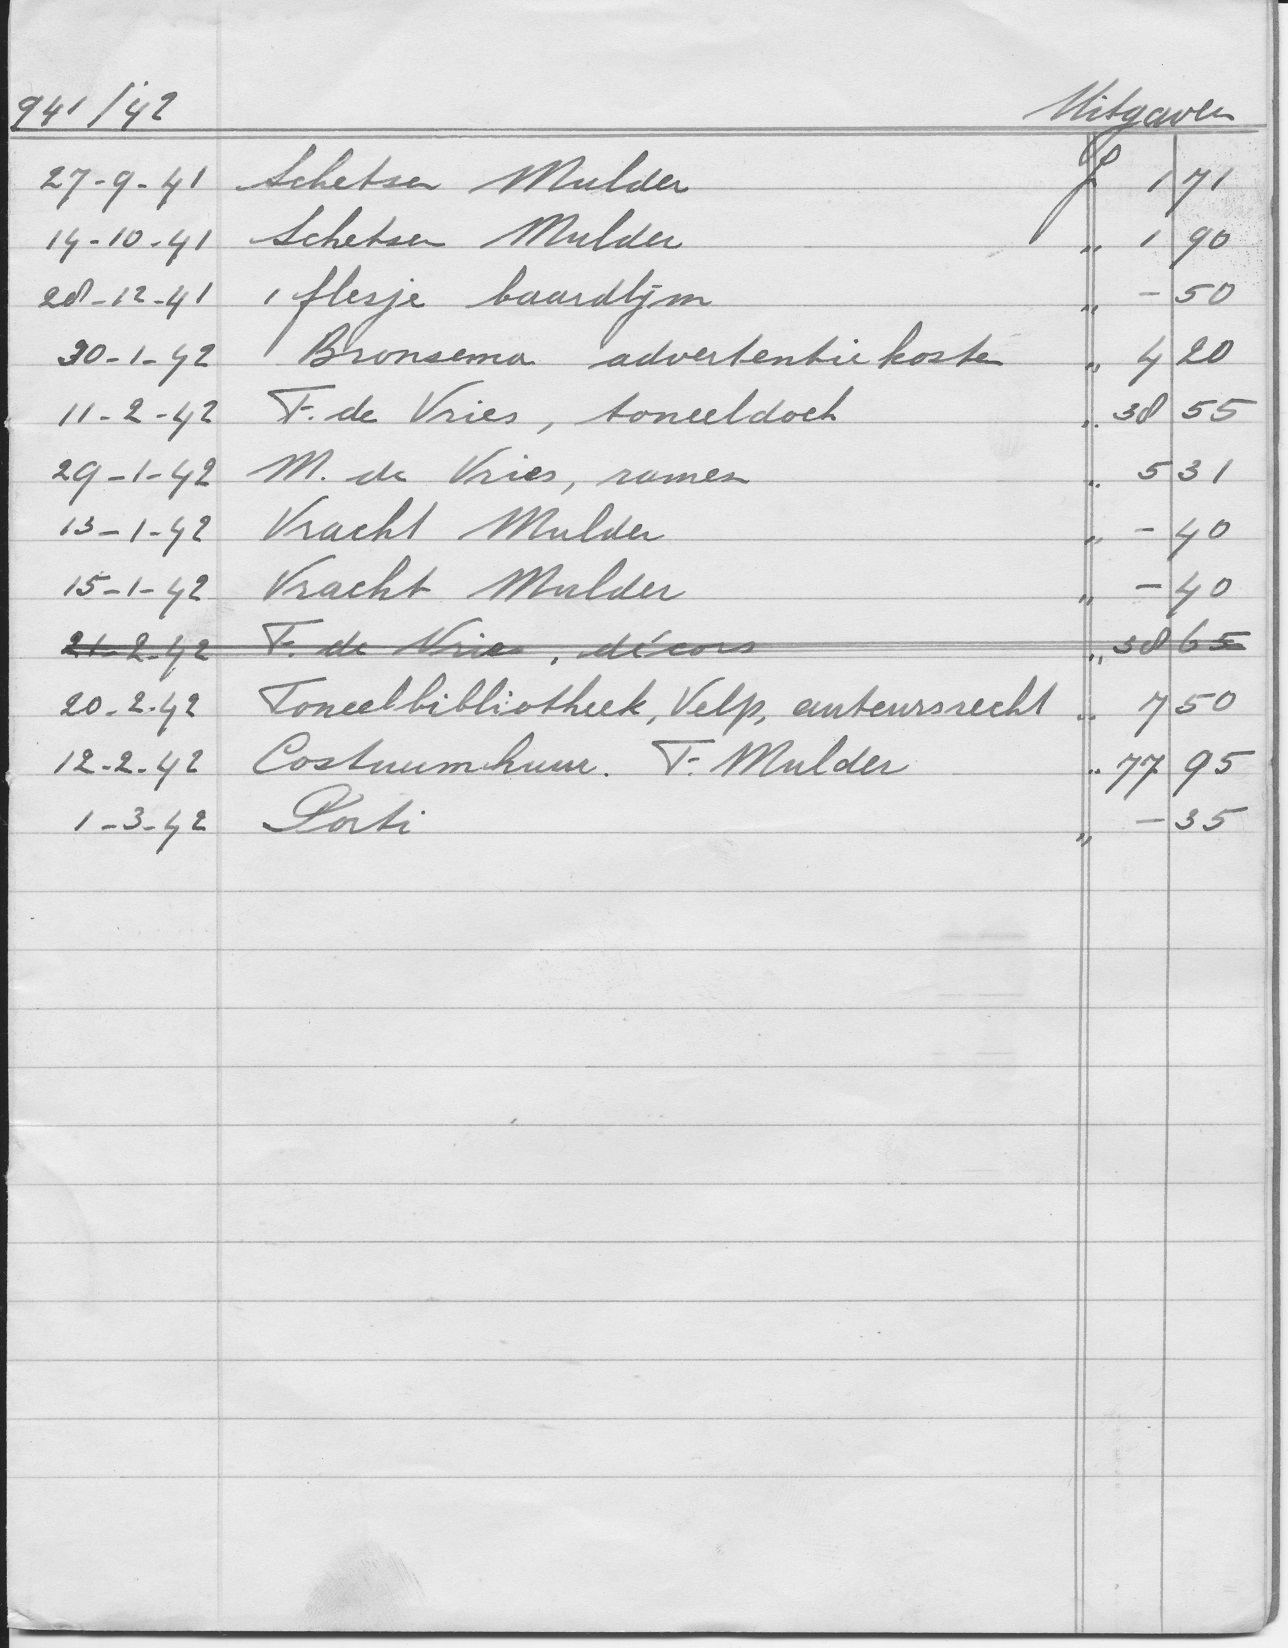 941/42 Uitgaven
27-9-41 Schetsen Mulder f 1 71
14-10-41 Schetsen Mulder „ 1 90
28-12-41 1 flesje baardlijm „ - 50
30-1-42 Bronsema advertentiekosten „ 4 20
11-2-42 F. de Vries, toneeldoek „ 38 55
29-1-42 M. de Vries, ramen „ 5 31
13-1-42 Vracht Mulder „ - 40
15-1-42 Vracht Mulder „ - 40
21-2-42 F. de Vries, décors „ 38 65
20-2-42 Toneelbibliotheek, Velp, auteursrecht „ 7 50
12-2-42 Costuumhuur. F. Mulder „ 77 95
1-3-42 Porti „ - 35